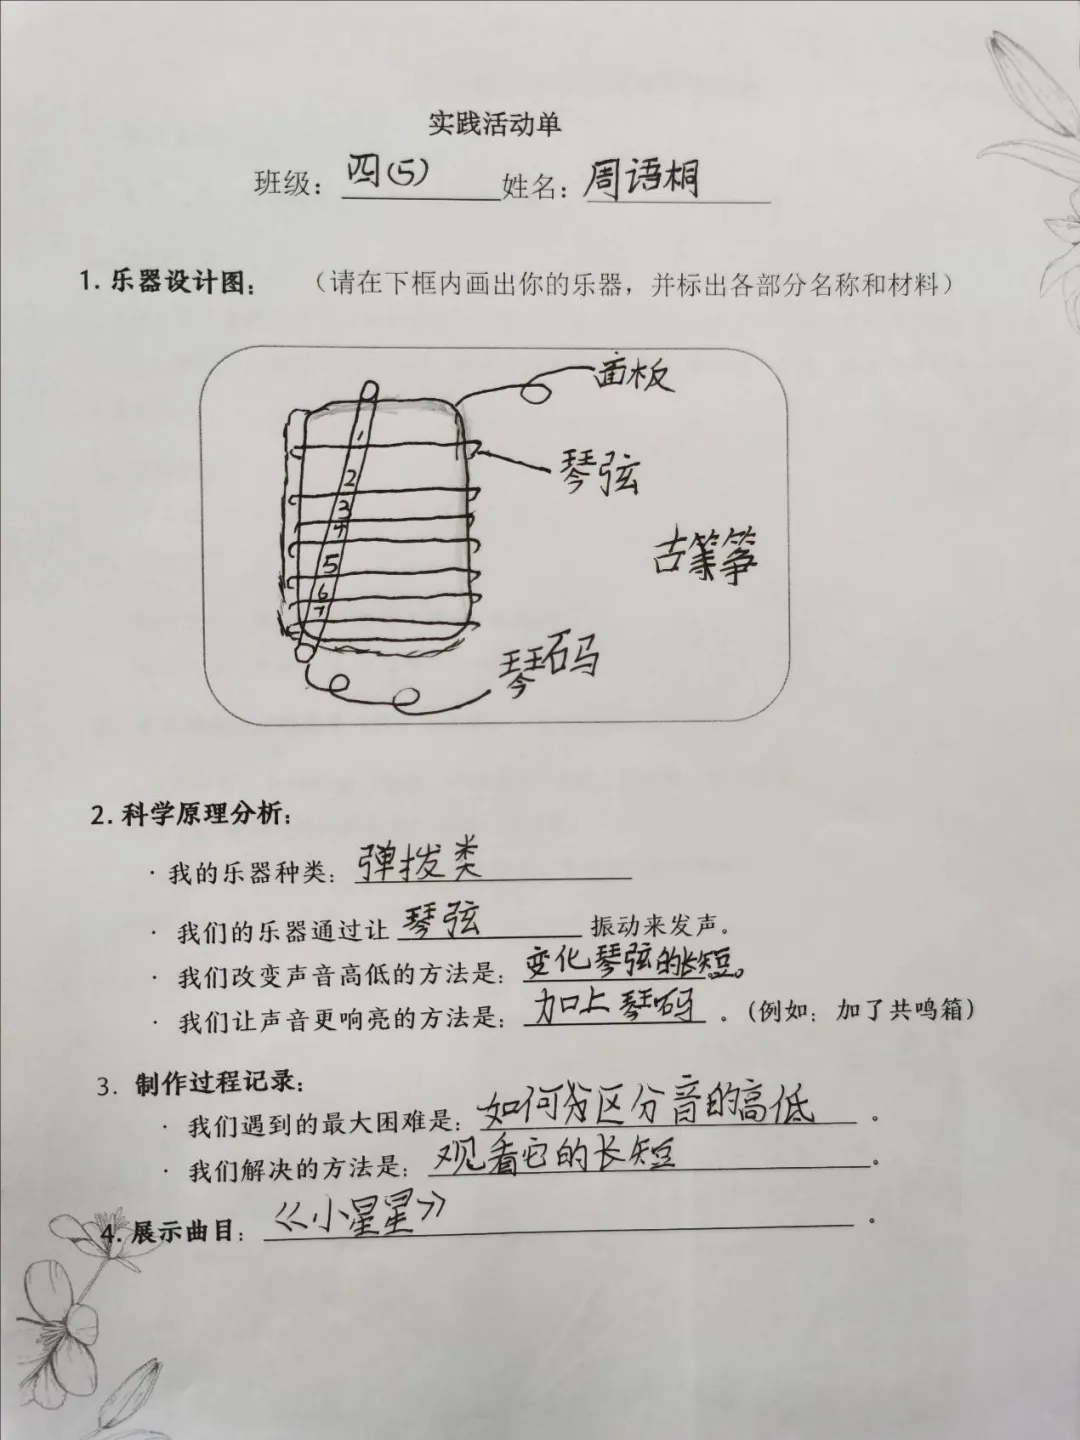 实践活动单
班级：四(5) 姓名：周语桐
1. 乐器设计图：（请在下框内画出你的乐器，并标出各部分名称和材料）
面板
1
琴弦
2
3
4
古筝
5
6
7
琴码
2. 科学原理分析：
· 我的乐器种类：弹拨类
· 我们的乐器通过让 琴弦 振动来发声。
· 我们改变声音高低的方法是：变化琴弦的长短。
· 我们让声音更响亮的方法是：加上琴码 。(例如：加了共鸣箱)
3. 制作过程记录：
· 我们遇到的最大困难是：如何区分音的高低 。
· 我们解决的方法是：观看它的长短 。
4. 展示曲目：《小星星》 。